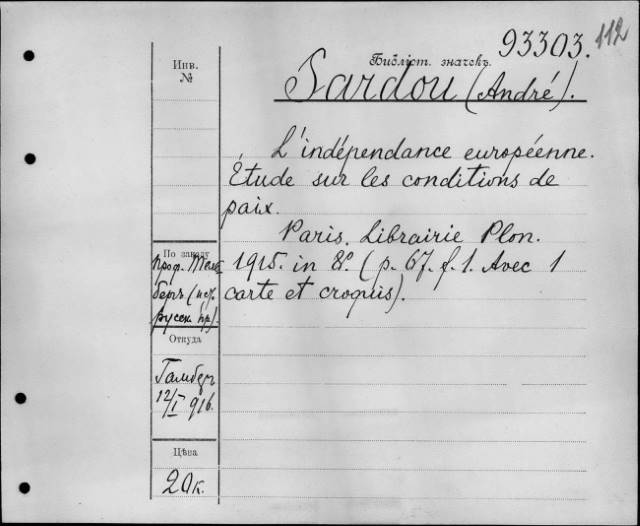 93303. 112
Инв.
№
Библіот. значекъ
Sardou (André).
L'indépendance européenne.
Étude sur les conditions de
paix.
Paris. Librairie Plon.
1915. in 8° (p. 67. f. 1. Avec 1
carte et croquis).
По заказу
проф. Тель
бергъ (ист.
русск. пр).
Откуда
Гамберъ
12/I 916.
Цѣна
20к.